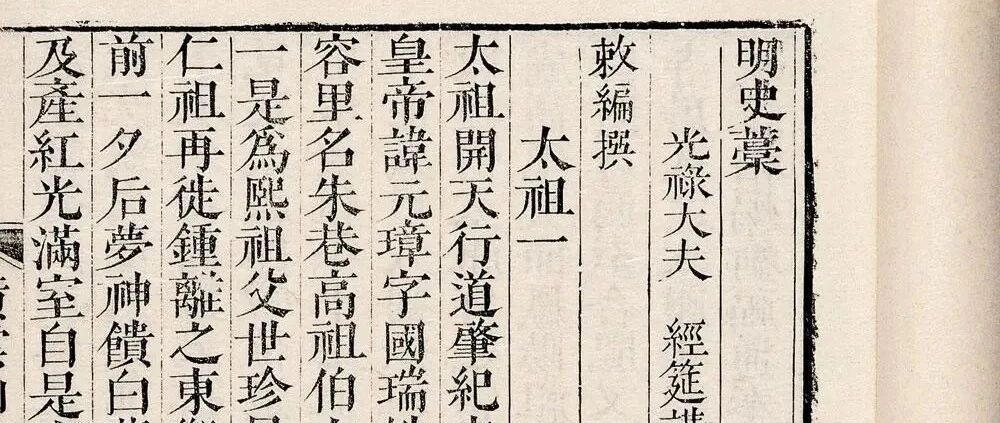 明史藁
光祿大夫 經筵講
敕編撰
太祖一
太祖開天行道肇紀
皇帝諱元璋字國瑞姓
容里名朱巷高祖伯
一是爲熙祖父世珍
仁祖再徙鍾離之東
前一夕后夢神饋白
及產紅光滿室自是